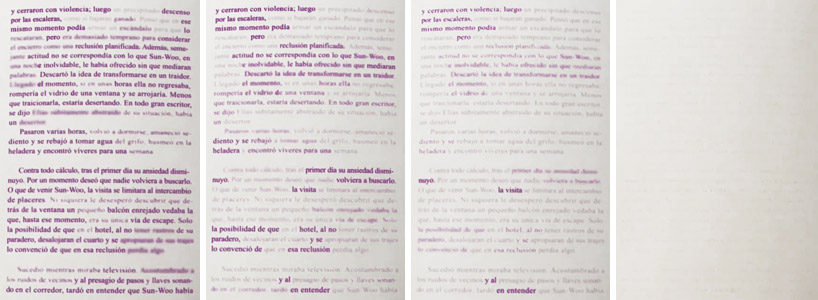 y cerraron con violencia; luego un precipitado descenso
por las escaleras, como si bajaran ganado. Pensó que en ese
mismo momento podía armar un escándalo para que lo
rescataran, pero era demasiado temprano para considerar
el encierro como una reclusión planificada. Además, seme-
jante actitud no se correspondía con lo que Sun-Woo, en
una noche inolvidable, le había ofrecido sin que mediaran
palabras. Descartó la idea de transformarse en un traidor.
Llegado el momento, si en unas horas ella no regresaba,
rompería el vidrio de una ventana y se arrojaría. Menos
que traicionarla, estaría desertando. En todo gran escritor,
se dijo Elías súbitamente abstraído de su situación, había
un desertor.
Pasaron varias horas, volvió a dormirse, amaneció se-
diento y se rebajó a tomar agua del grifo, husmeó en la
heladera y encontró víveres para una semana.
Contra todo cálculo, tras el primer día su ansiedad dismi-
nuyó. Por un momento deseó que nadie volviera a buscarlo.
O que de venir Sun-Woo, la visita se limitara al intercambio
de placeres. Ni siquiera le desesperó descubrir que de-
trás de la ventana un pequeño balcón enrejado vedaba la
que, hasta ese momento, era su única vía de escape. Solo
la posibilidad de que en el hotel, al no tener rastros de su
paradero, desalojaran el cuarto y se apropiaran de sus trajes
lo convenció de que en esa reclusión perdía algo.
Sucedió mientras miraba televisión. Acostumbrado a
los ruidos de vecinos y al presagio de pasos y llaves sonan-
do en el corredor, tardó en entender que Sun-Woo había